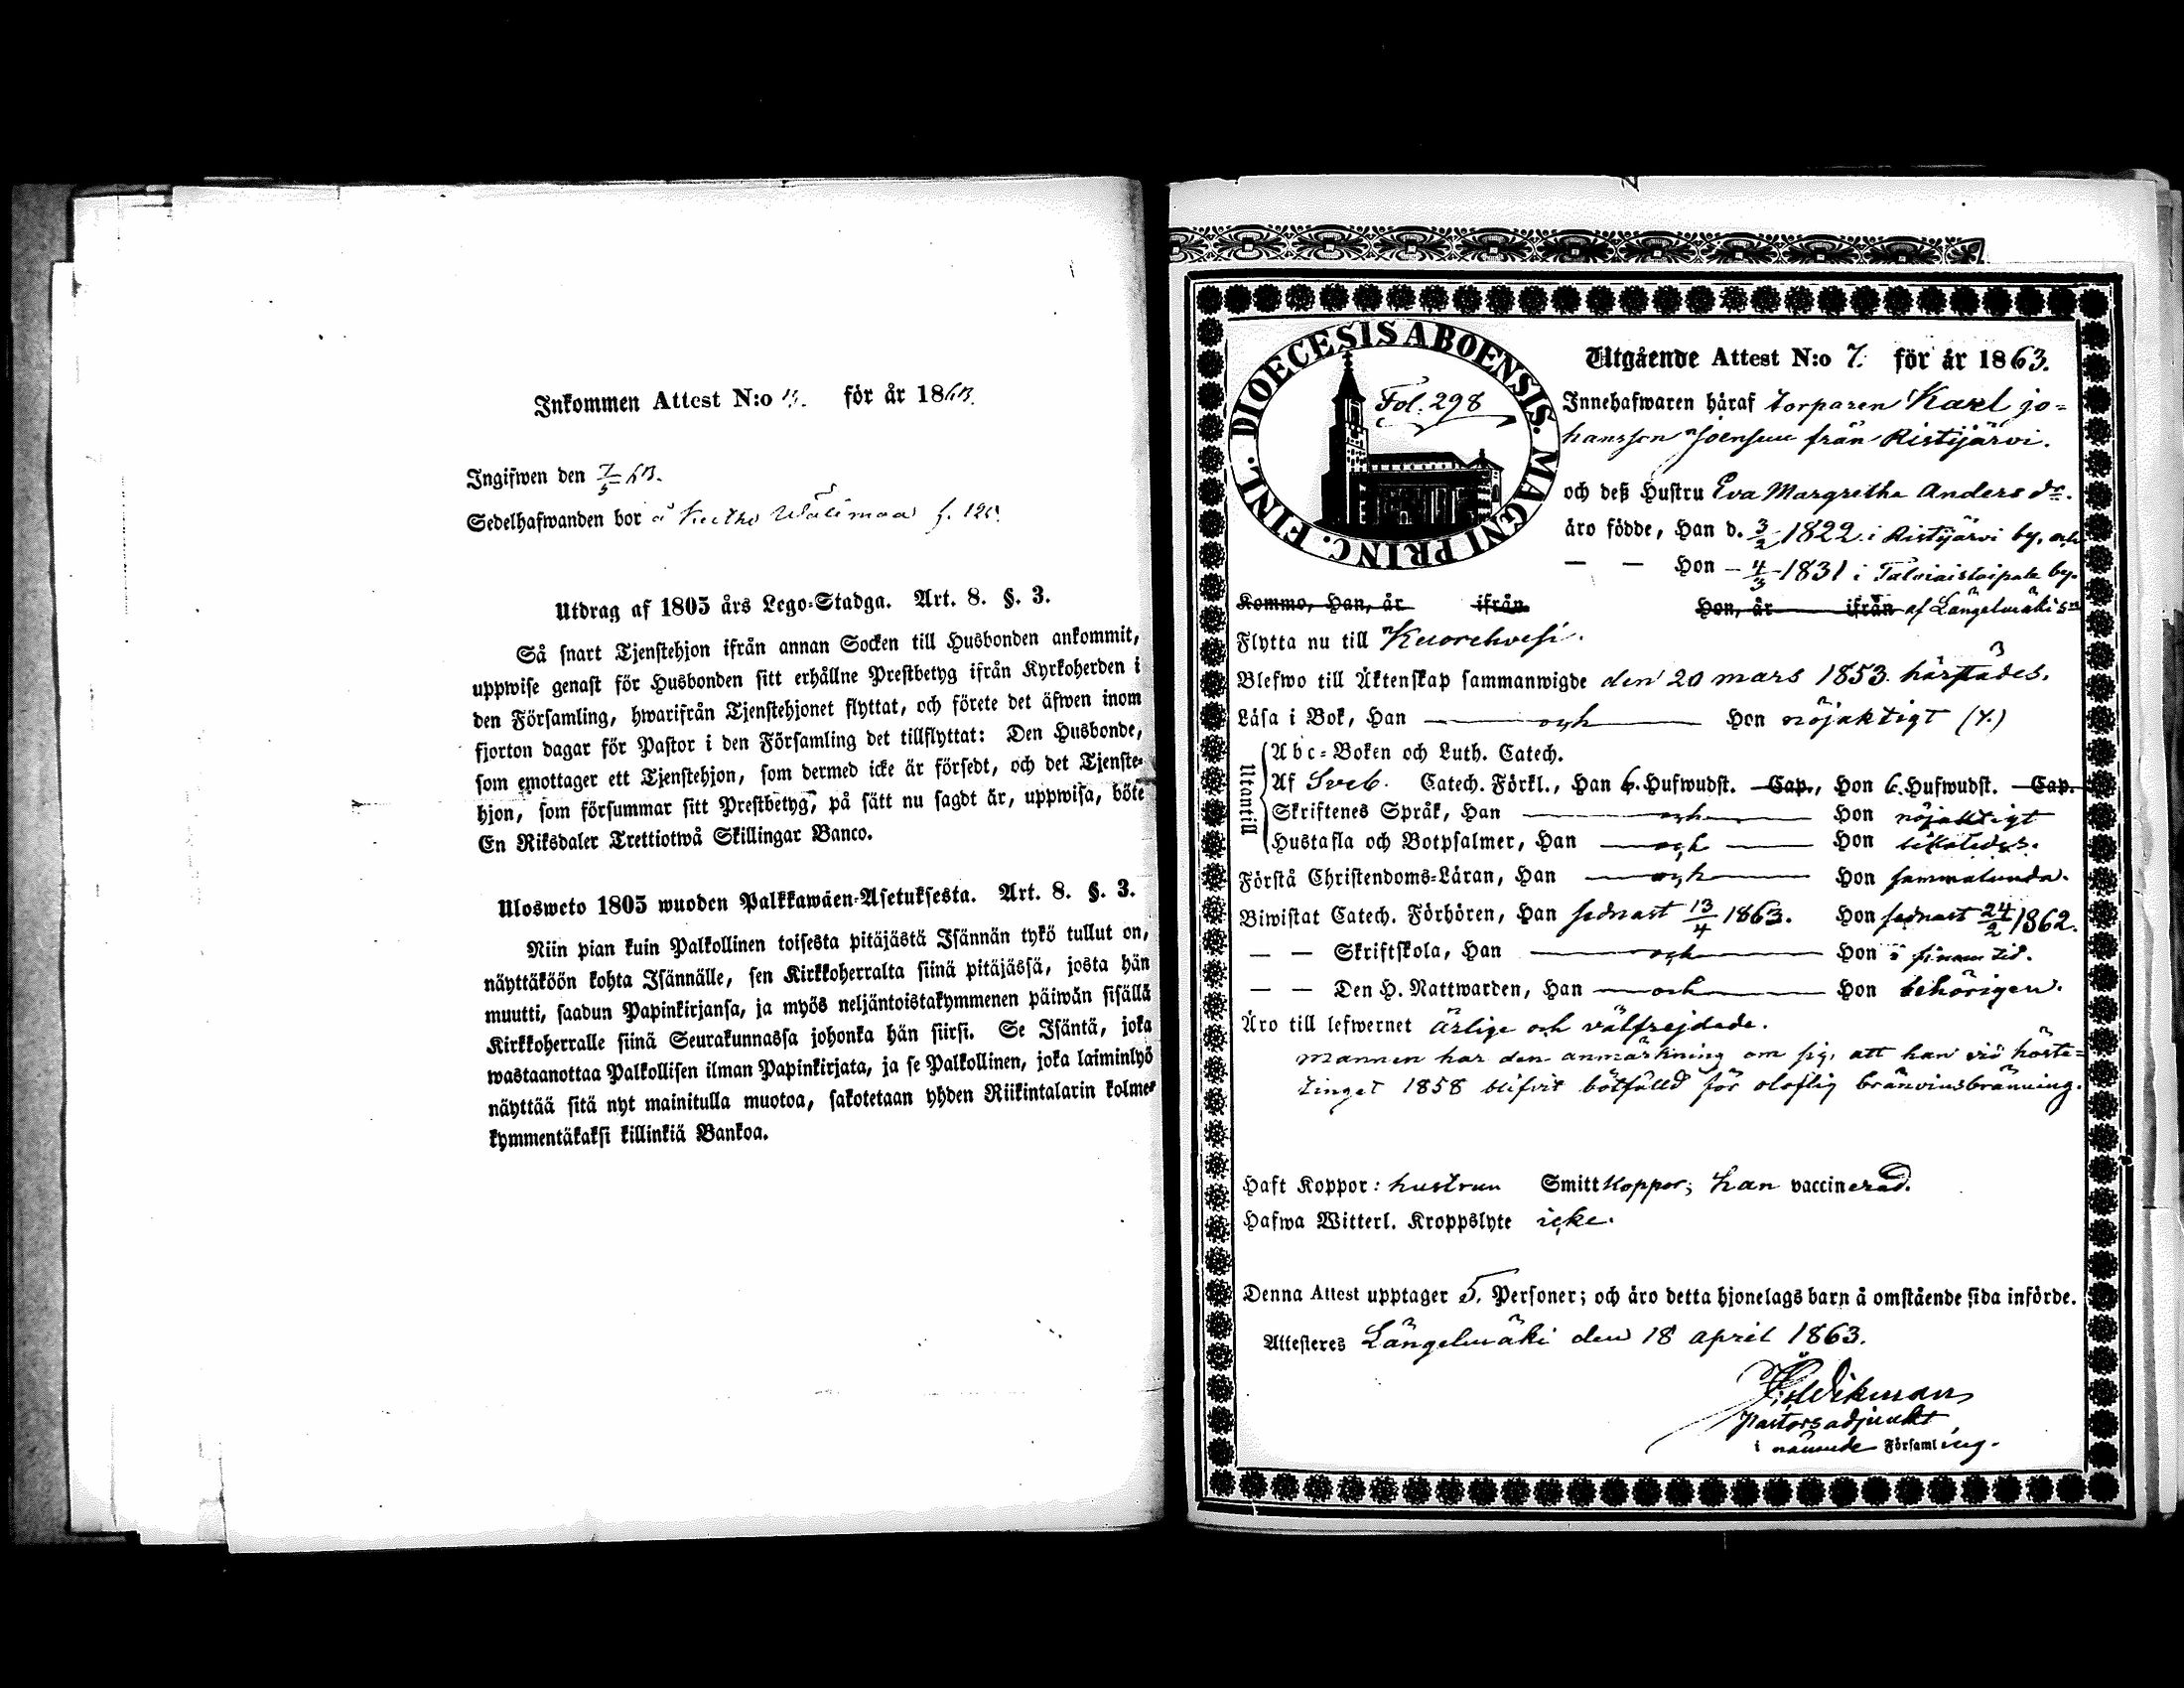 Inkommen Attest N:o för år 1863.
Ingifwen den 7/5 63.
Sedelhafwanden bor å Wälimaa f.
Utdrag af 1805 års Lego-Stadga. Art. 8. §. 3.
Så snart Tjenstehjon ifrån annan Socken till Husbonden ankommit,
uppwise genast för Husbonden sitt erhållne Prestbetyg ifrån Kyrkoherden i
den Församling, hwarifrån Tjenstehjonet flyttat, och förete det äfwen inom
fjorton dagar för Pastor i den Församling det tillflyttat: Den Husbonde,
som emottager ett Tjenstehjon, som dermed icke är försedt, och det Tjenste-
hjon, som försummar sitt Prestbetyg, på sätt nu sagdt är, uppwisa, böte
En Riksdaler Trettiotwå Skillingar Banco.
Ulosweto 1805 wuoden Palkkawäen-Asetuksesta. Art. 8. §. 3.
Niin pian kuin Palkollinen toisesta pitäjästä Isännän tykö tullut on,
näyttäköön kohta Isännälle, sen Kirkkoherralta siinä pitäjässä, josta hän
muutti, saadun Papinkirjansa, ja myös neljäntoistakymmenen päiwän sisällä
Kirkkoherralle siinä Seurakunnassa johonka hän siirsi. Se Isäntä, joka
wastaanottaa Palkollisen ilman Papinkirjata, ja se Palkollinen, joka laiminlyö
näyttää sitä nyt mainitulla muotoa, sakotetaan yhden Riikintalarin kolme-
kymmentäkaksi killinkiä Bankoa.
DIOECESIS ABOENSIS. MAGNI PRINC. FINL.
Fol. 298
Utgående Attest N:o 7. för år 1863.
Innehafwaren häraf torparen Karl jo-
hansson Joensuu från Ristijärvi.
och deß Hustru Eva Margretha Anders dr.
äro födde, Han d. 3/2 1822 i Ristijärvi by, och
— — Hon - 4/3 1831 i Talviaistaipale by.
Kommo, Han, år ifrån Hon, år ifrån af Längelmäki sn
Flytta nu till Kuorehvesi.
Blefwo till Äktenskap sammanwigde den 20 mars 1853 härstädes.
Läsa i Bok, Han och Hon nöjaktigt (/.)
Utantill
Abc-Boken och Luth. Catech.
Af Sveb. Catech. Förkl., Han 6. Hufwudst. Cap., Hon 6. Hufwudst. Cap.
Skriftenes Språk, Han och Hon nöjaktigt
Hustafla och Botpsalmer, Han och Hon likaledes.
Förstå Christendoms-Läran, Han och Hon sammalunda.
Biwistat Catech. Förhören, Han sednast 13/4 1863. Hon sednast 24/2 1862.
— — Skriftskola, Han och Hon i sinom tid.
— — Den H. Nattwarden, Han och Hon behörigen.
Äro till lefwernet ärlige och välfrejdade.
mannen har den anmärkning om sig, att han vid höste-
tinget 1858 blifvit bötfälld för oloflig bränvinsbränning.
Haft Koppor: hustrun Smittkoppor; han vaccinerad.
Hafwa Witterl. Kroppslyte icke.
Denna Attest upptager 5. Personer; och äro detta hjonelags barn å omstående sida införde.
Attesteres Längelmäki den 18 april 1863.
Wikman
pastorsadjunkt
i nämnde Församling.